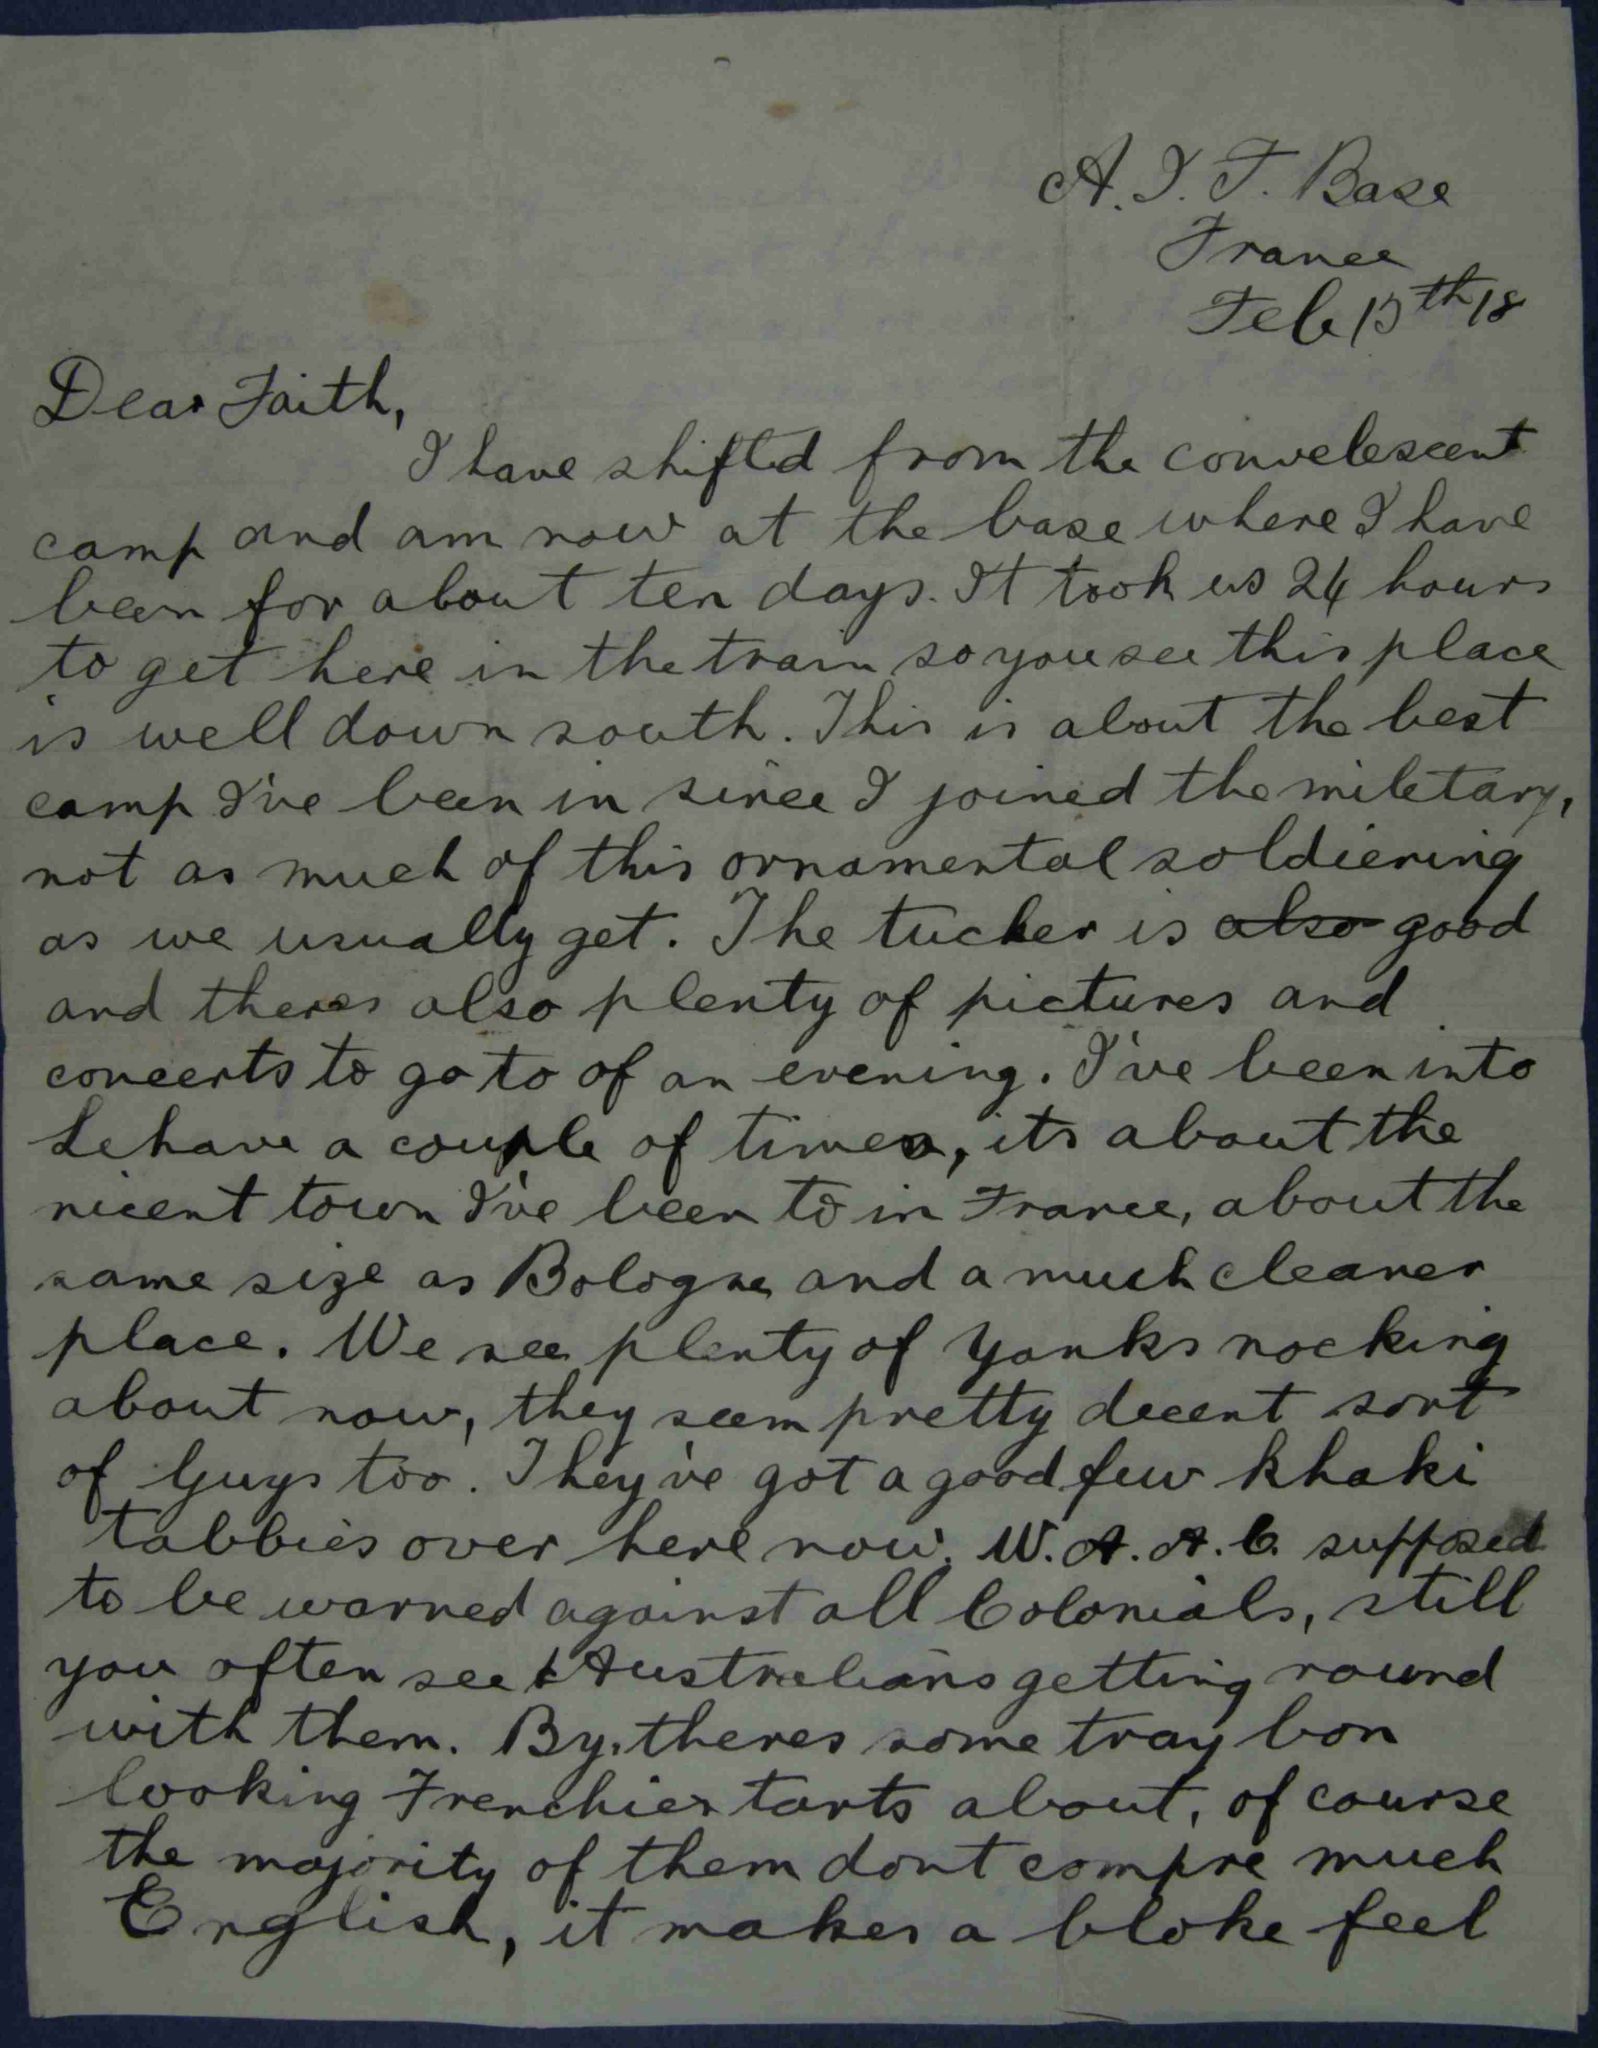 A. I. F. Base
France
Feb 15th 18
Dear Faith,
I have shifted from the convelescent
camp and am now at the base where I have
been for about ten days. It took us 24 hours
to get here in the train so you see this place
is well down south. This is about the best
camp I've been in since I joined the miletary,
not as much of this ornamental soldiering
as we usually get. The tucker is also good
and theres also plenty of pictures and
concerts to go to of an evening. I've been into
Lehave a couple of times, its about the
nicent town I've been to in France, about the
same size as Bologne and a much cleaner
place. We see plenty of Yanks nocking
about now, they seem pretty decent sort
of Guys too. They've got a good few khaki
tabbies over here now. W. A. A. C. supposed
to be warned against all Colonials, still
you often see Australians getting round
with them. By, theres some tray bon
looking Frenchies tarts about, of course
the majority of them dont compre much
English, it makes a bloke feel